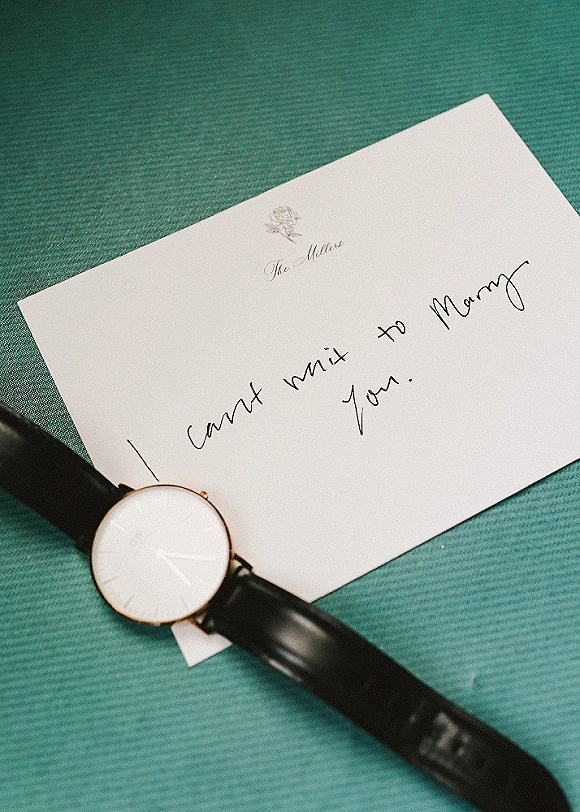 The Millers
I can't wait to Marry
You.